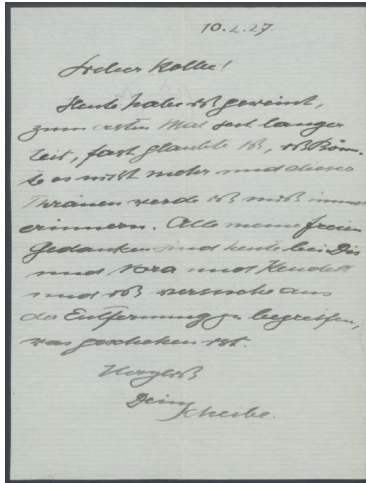 10.2.27.
Lieber Kolbe!
Heute habe ich geweint,
zum ersten Mal seit langer
Zeit, fast glaubte ich, ich könn-
te es nicht mehr und dieser
Tränen werde ich mich immer
erinnern. Alle meine freien
Gedanken sind heute bei Dir
und Nora und
und ich versuche aus
der Entfernung zu begreifen,
was geschehen ist.
Herzlich
Dein
Scheibe.